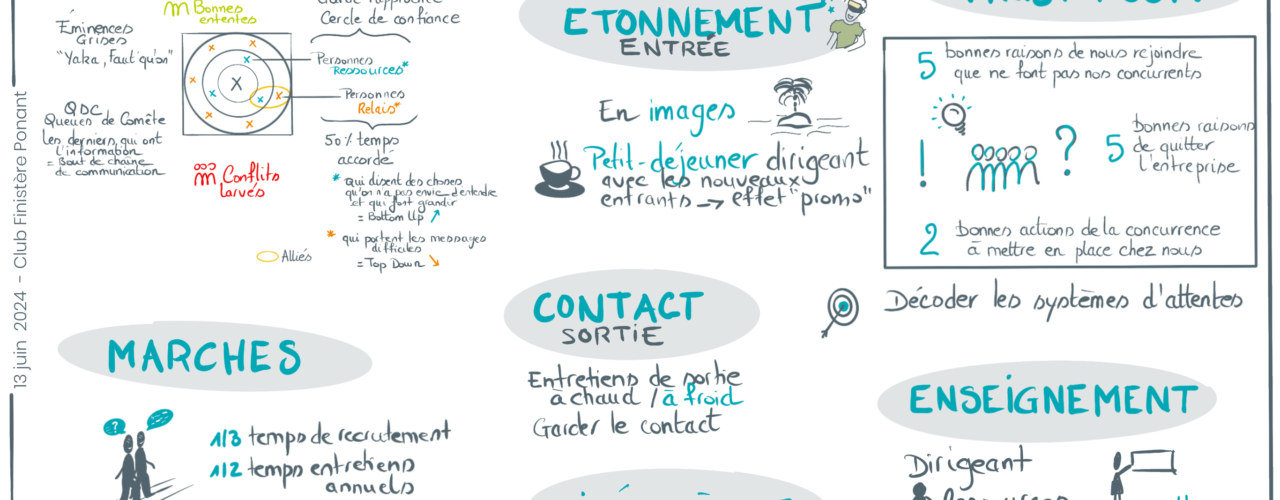 13 juin 2024 - Club Finistère Ponant
Bonnes
ententes
Éminences
Grises
"Yaka, Faut qu'on"
QDC
Queues de Comète
Les derniers qui ont
l'information
= Bout de chaîne
de communication
Cercle de confiance
Personnes
Ressources*
Personnes
Relais*
50% temps
accordé
* qui disent des choses
qu'on n'a pas envie d'entendre
et qui font grandir
= Bottom Up
* qui portent les messages
difficiles
= Top Down
Conflits
larvés
Alliés
MARCHES
?
1/3 temps de recrutement
1/2 temps entretiens
annuels
ETONNEMENT
ENTRÉE
En images
Petit-déjeuner dirigeant
avec les nouveaux
entrants → effet "promo"
CONTACT
SORTIE
Entretiens de sortie
à chaud / à froid
Garder le contact
5 bonnes raisons de nous rejoindre
que ne font pas nos concurrents
! ?
5 bonnes raisons
de quitter
l'entreprise
2 bonnes actions de la concurrence
à mettre en place chez nous
Décoder les systèmes d'attentes
ENSEIGNEMENT
Dirigeant